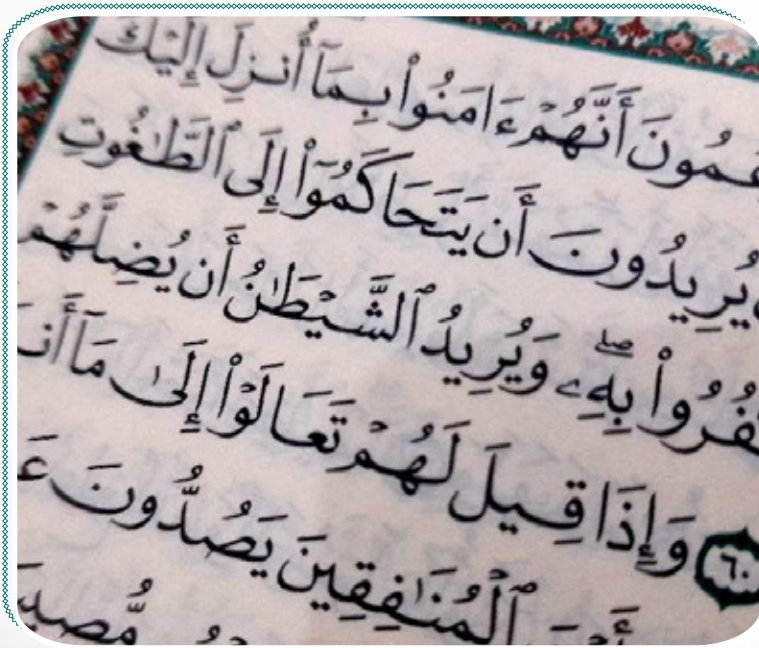 أَنَّهُمْ ءَامَنُوا۟ بِمَآ أُنزِلَ إِلَيْكَ
يُرِيدُونَ أَن يَتَحَاكَمُوٓا۟ إِلَى ٱلطَّٰغُوتِ
بِهِۦۖ وَيُرِيدُ ٱلشَّيْطَٰنُ أَن يُضِلَّهُمْ
٦٠ وَإِذَا قِيلَ لَهُمْ تَعَالَوْا۟ إِلَىٰ مَآ
ٱلْمُنَٰفِقِينَ يَصُدُّونَ